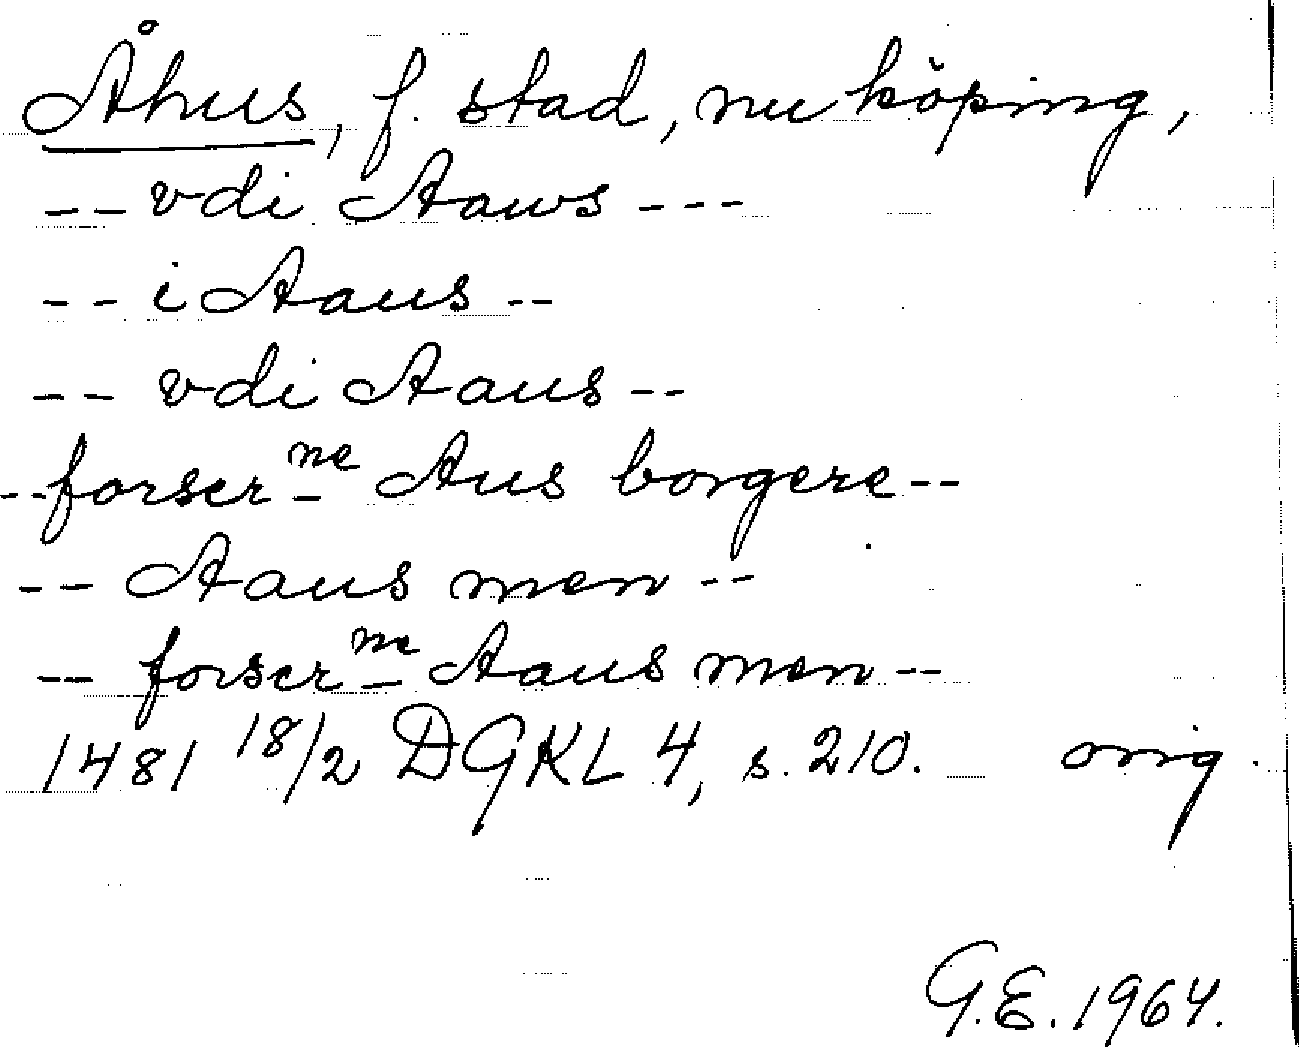 Åhus, f. stad, nu köping,
-- vdi Aaws ---
-- i Aaus --
-- vdi Aaus --
-- forser ne Aus borgere --
-- Aaus men --
-- forser ne Aaus men --
1481 18/2 DGKL 4, s. 210. orig.
G.E. 1964.